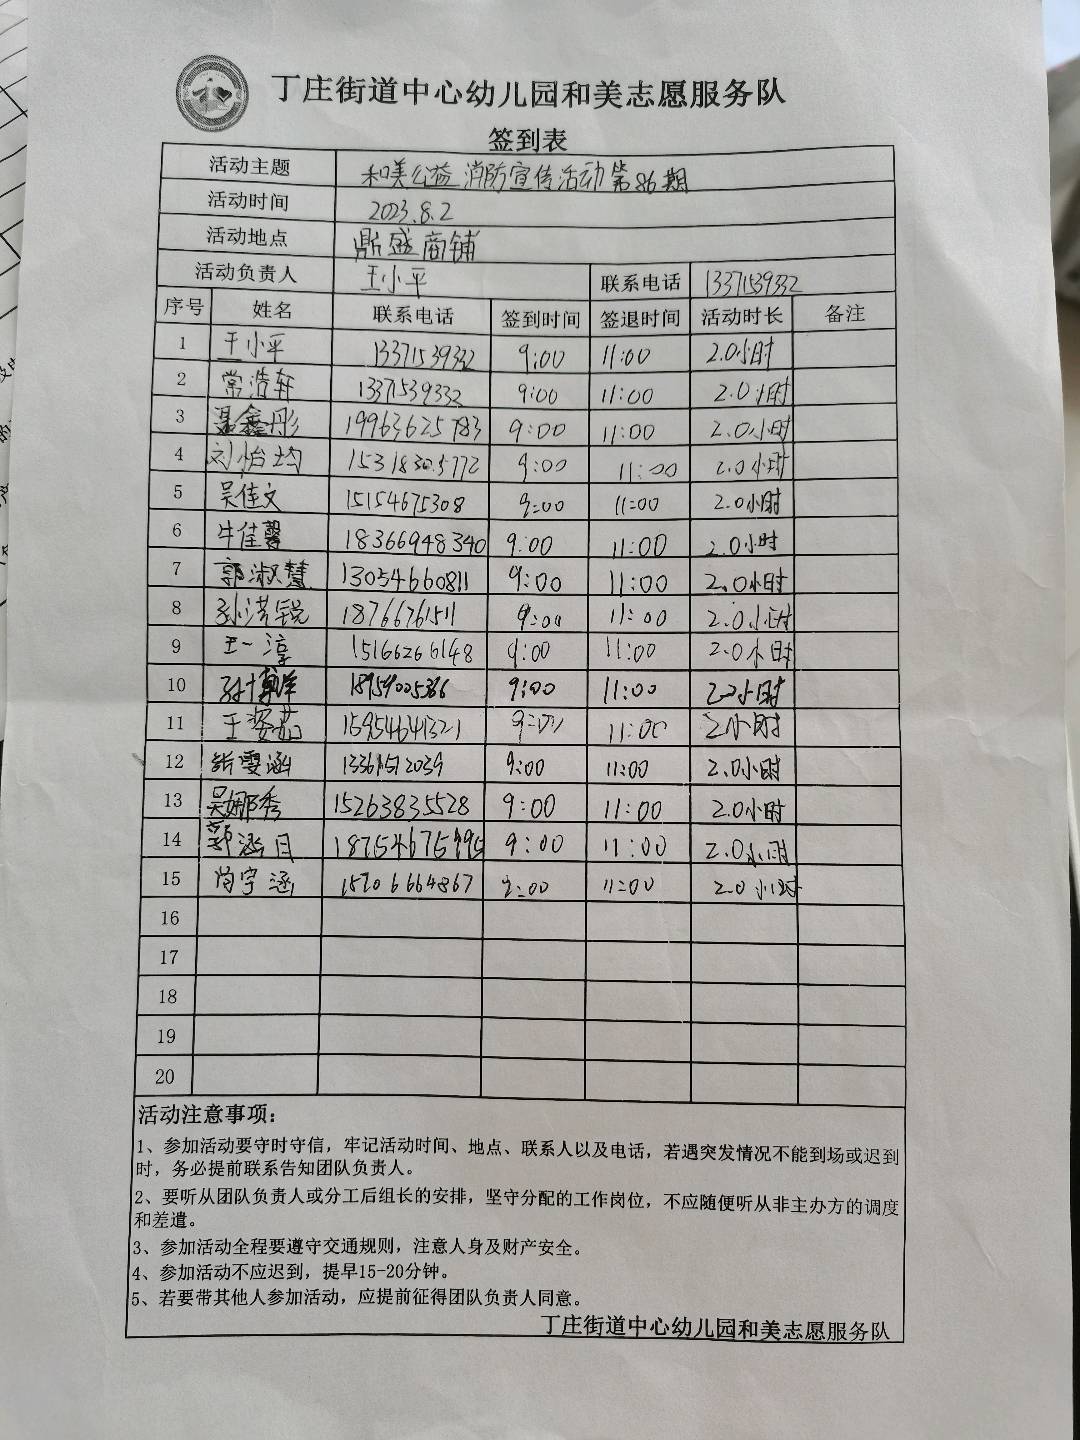 丁庄街道中心幼儿园和美志愿服务队
签到表
活动主题 和美公益 消防宣传活动第86期
活动时间 2023.8.2
活动地点 鼎盛商铺
活动负责人 王小平 联系电话 13371539332
序号 姓名 联系电话 签到时间 签退时间 活动时长 备注
1 王小平 13371539332 9:00 11:00 2.0小时
2 常浩轩 13371539332 9:00 11:00 2.0小时
3 鑫彤 19963625783 9:00 11:00 2.0小时
4 刘怡均 15318305772 9:00 11:00 2.0小时
5 吴佳文 15154675308 9:00 11:00 2.0小时
6 牛佳馨 18366948340 9:00 11:00 2.0小时
7 郭淑慧 13054660811 9:00 11:00 2.0小时
8 孙浩锐 18766761511 9:00 11:00 2.0小时
9 王一淳 15166266148 9:00 11:00 2.0小时
10 博洋 9:00 11:00 2.0小时
11 王姿茹 15954641321 9:00 11:00 2小时
12 雯涵 13361512039 9:00 11:00 2.0小时
13 吴娜秀 15263835528 9:00 11:00 2.0小时
14 郭涵月 9:00 11:00 2.0小时
15 尚宇涵 15206664867 9:00 11:00 2.0小时
16
17
18
19
20
活动注意事项：
1、参加活动要守时守信，牢记活动时间、地点、联系人以及电话，若遇突发情况不能到场或迟到
时，务必提前联系告知团队负责人。
2、要听从团队负责人或分工后组长的安排，坚守分配的工作岗位，不应随便听从非主办方的调度
和差遣。
3、参加活动全程要遵守交通规则，注意人身及财产安全。
4、参加活动不应迟到，提早15-20分钟。
5、若要带其他人参加活动，应提前征得团队负责人同意。
丁庄街道中心幼儿园和美志愿服务队